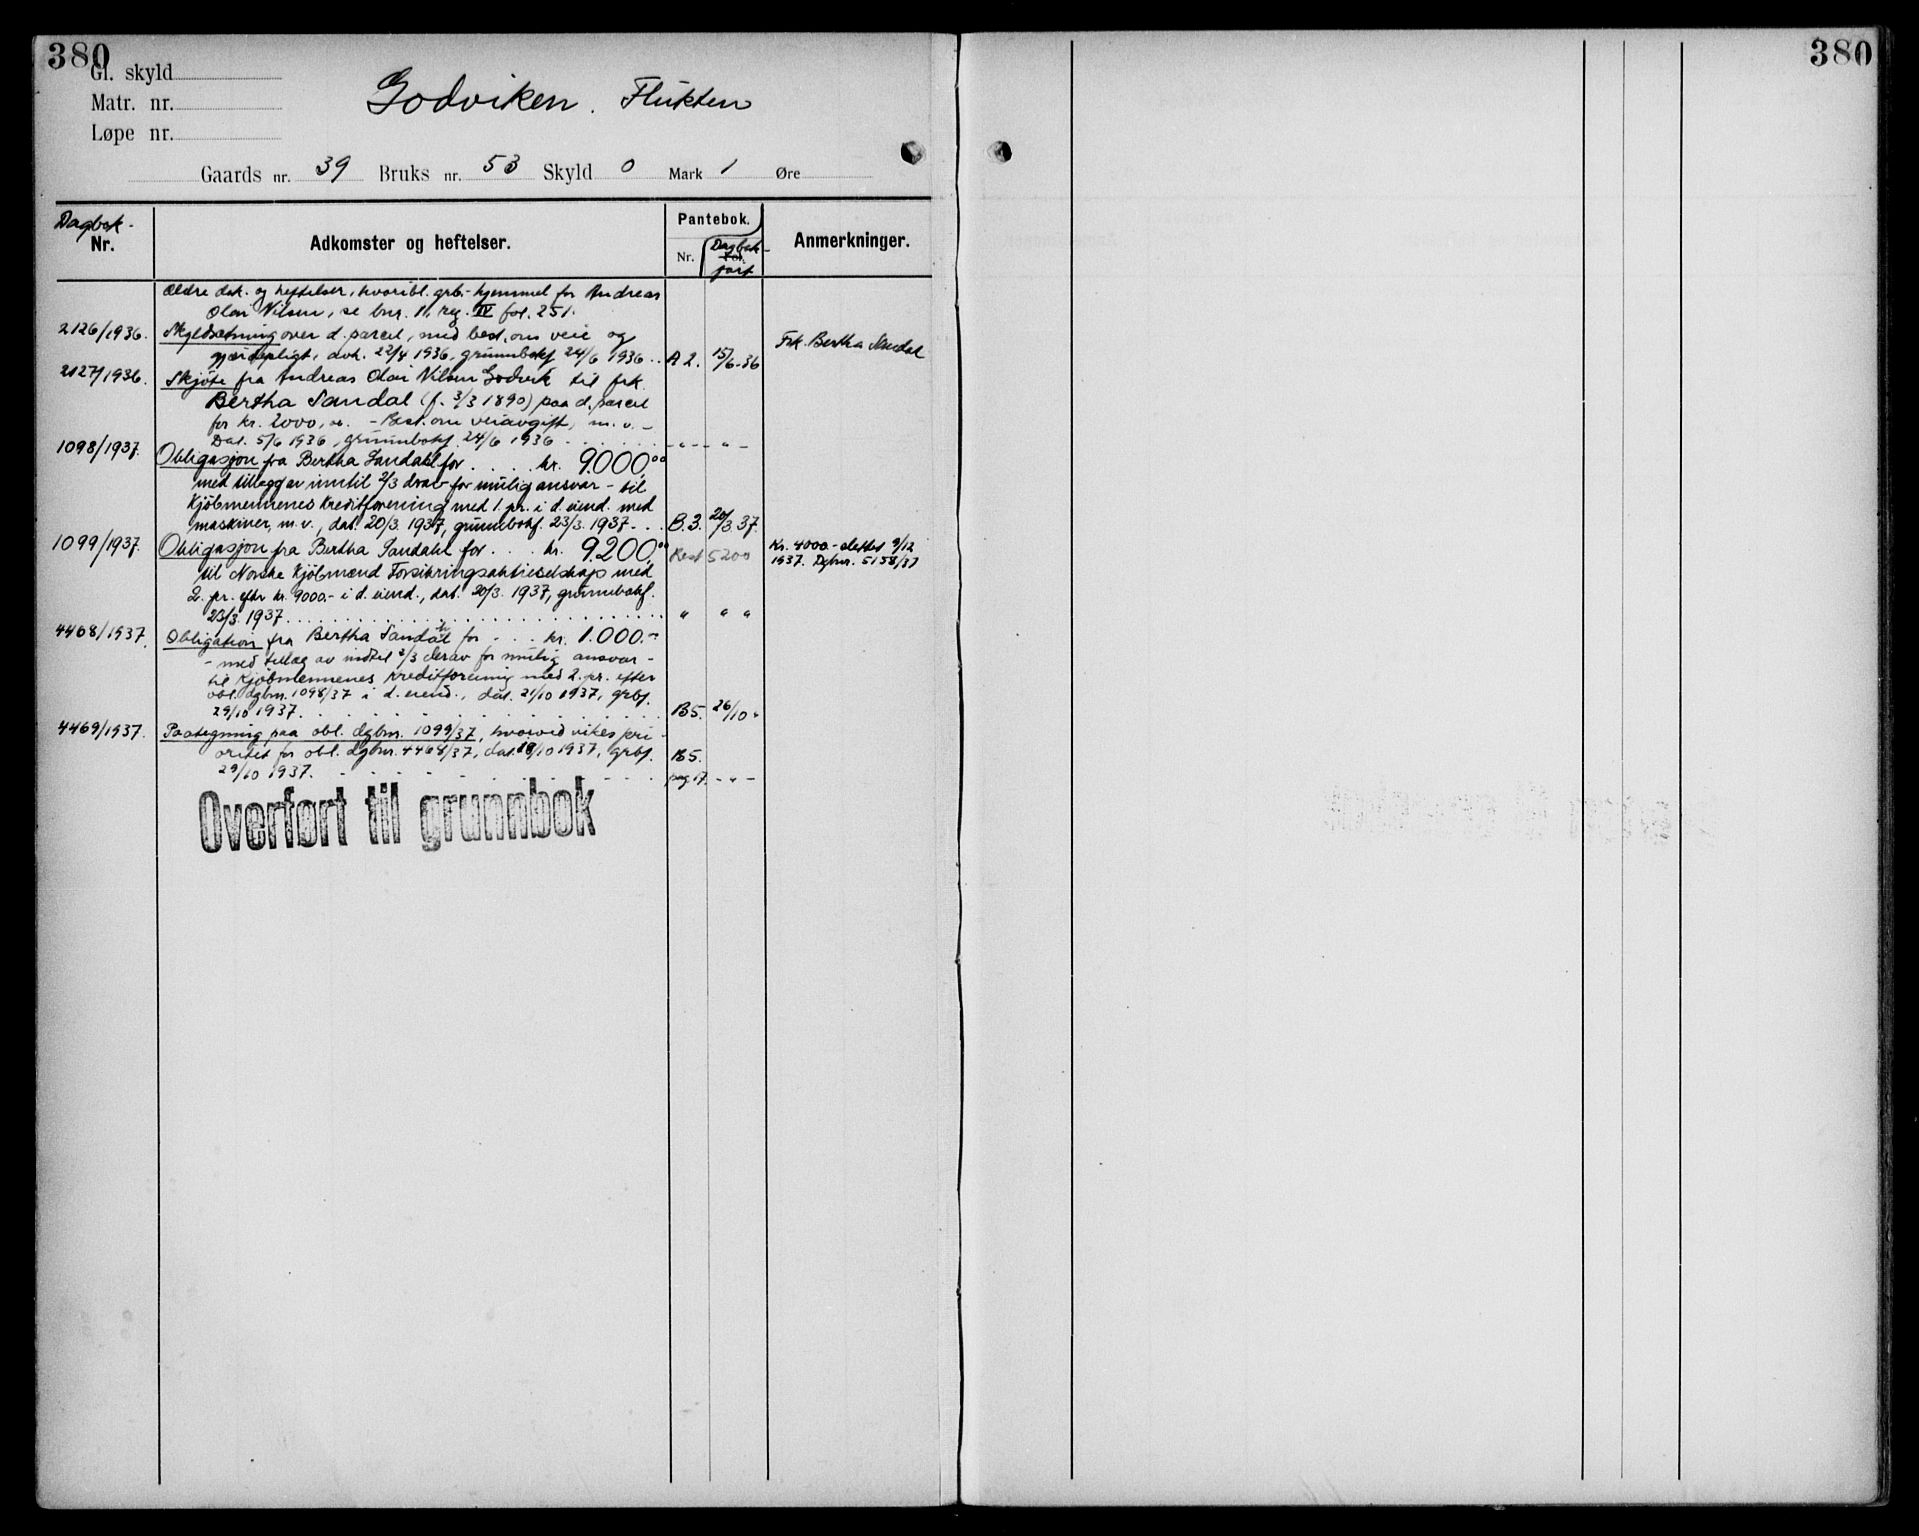 380
Gl. skyld
Matr. nr.
Godviken. Flukten
Løpe nr.
Gaards nr. 39 Bruks nr. 53 Skyld 0 Mark 1 Øre
Dagbok-
Nr.
Adkomster og heftelser.
Pantebok.
Nr.
Fol.
Dagbok-
ført
Anmerkninger.
Ældre dok. og heftelser, hvoribl. grb.-hjemmel for Andreas
Olai Nilsen, se bnr. 11, reg. IV fol. 251.
2126/1936. Skyldsetning over d. parcel, med best. om veie og
gjerdepligt, avh. 22/4 1936, grunnbokf 24/6 1936 .. A 2. 15/6-36
Frk. Bertha Sandal
2127/1936. Skjøte fra Andreas Olai Nilsen Godvik til frk.
Bertha Sandal (f. 3/3 1890) paa d. parcel
for kr. 2000,00. - Best. om veiavgift, m. v. -
Dat. 5/6 1936, grunnbokf. 24/6 1936 . . . . . . - " - - " -
1098/1937. Obligasjon fra Bertha Sandahl for . . . . kr. 9000,00
med tillegg av inntil 2/3 derav for mulig ansvar - til
Kjøbmennenes Kreditforening med 1. pr. i d. eiend. med
maskiner, m. v., dat. 20/3. 1937, grunnbokf. 23/3. 1937 - . . B. 3. 20/3 37.
1099/1937. Obligasjon fra Bertha Sandahl for . . . kr. 9200,00 Rest 5200
Kr. 4000.- slettet 9/12
1937. Dgbnr. 5158/37
til Norske Kjøbmænd Forsikringsaktieselskap med
2. pr. efter kr. 9000.- i d. eiend., dat. 20/3. 1937, grunnbokf.
23/3. 1937 . . . . . . . . . . . . . " " "
4468/1937. Obligation fra Bertha Sandahl for - . . kr. 1.000.-
- med tillæg av indtil 2/3 derav for mulig ansvar -
til Kjøbmennenes Kreditforening med 2. pr. efter
obl. dgbnr. 1098/37 i d. eiend., dat. 21/10 1937, grbf.
29/10 1937. . . . . . . . . . . . . B5. 26/10 "
4469/1937. Paategning paa obl. dgbnr. 1099/37, hvorved vikes pri-
oritet for obl. dgbnr. 4468/37, dat. 18/10 1937, grbf. B5.
29/10 1937. . . . . . . . . . . . pag 17. - " -
Overført til grunnbok
380